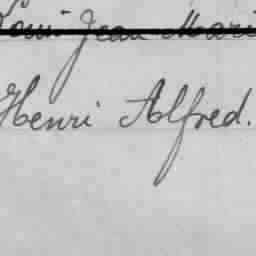 Louis Jean Marie
Henri Alfred.